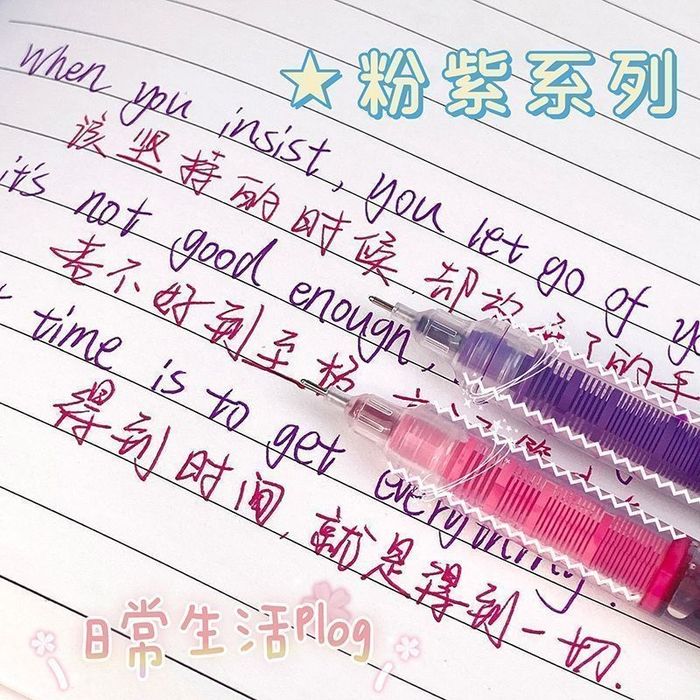 ★粉紫系列
When you insist, you let go of y
该坚持的时候 却放 了的手
it's not good enough,
去不好到至
time is to get everything.
得到时间,就是得到一切.
日常生活Plog